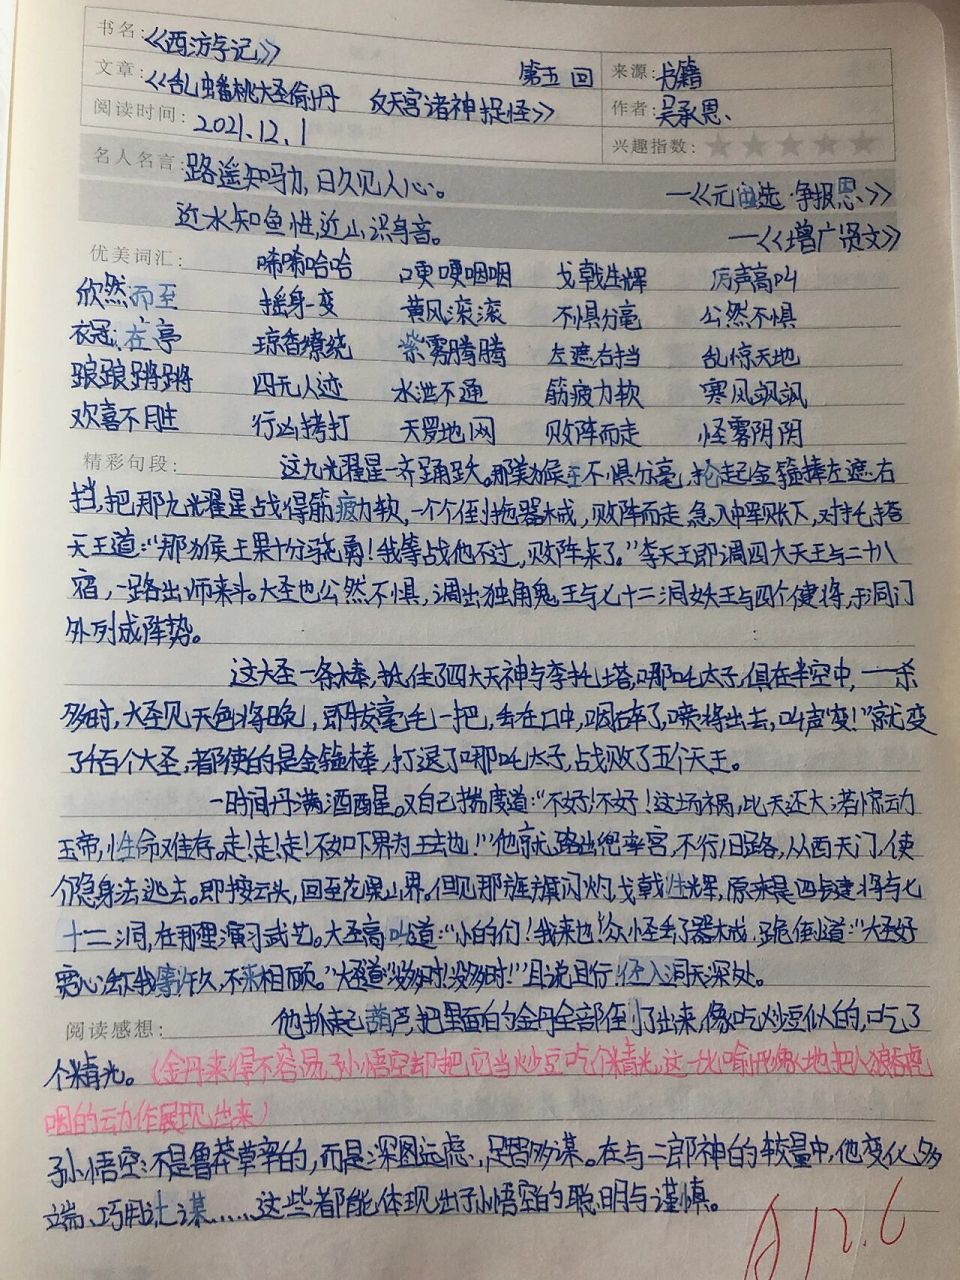 书名:《西游记》
文章:《乱蟠桃大圣偷丹 反天宫诸神捉怪》 第五回 来源:书籍
阅读时间:2021.12.1 作者:吴承恩、
兴趣指数:★★★★★
名人名言:路遥知马力,日久见人心。 —《元曲选·争报恩》
近水知鱼性,近山识鸟音。 —《增广贤文》
优美词汇: 唏唏哈哈 哽哽咽咽 戈戟生辉 厉声高叫
欣然而至 摇身一变 黄风滚滚 不惧分毫 公然不惧
衣冠在亭 琼香缭绕 紫雾腾腾 左遮右挡 乱惊天地
踉踉跄跄 四无人迹 水泄不通 筋疲力软 寒风飒飒
欢喜不胜 行凶拷打 天罗地网 败阵而走 怪雾阴阴
精彩句段: 这九光耀星一齐踊跃。那美猴王不惧分毫,抡起金箍棒左遮右
挡,把那九光耀星战得筋疲力软,一个个倒拖器械,败阵而走,急入中军账下,对托塔
天王道:“那猴王果十分骁勇!我等战他不过,败阵来了。”李天王即调四大天王与二十八
宿,一路出师来斗。大圣也公然不惧,调出独角鬼王与七十二洞妖王与四个健将,于洞门
外列成阵势。
这大圣一条棒,抵住了四大天神与李托塔,哪吒太子,俱在半空中,一杀
多时,大圣见天色将晚,即拔毫毛一把,丢在口中,咽碎了,喷将出去,叫声变!”就变
了千百个大圣,都使的是金箍棒,打退了哪吒太子,战败了五个天王。
一时间丹满酒醒。又自己揣度道:“不好!不好!这场祸,比天还大;若惊动
玉帝,性命难存。走!走!走!不如下界为王去也!”他就跑出兜率宫,不行旧路,从西天门,使
个隐身法逃去。即按云头,回至花果山界。但见那旌旗闪灼,戈戟生辉,原来是四健将与七
十二洞,在那里演习武艺。大圣高叫道:“小的们!我来也!众怪丢了器械,跪倒道:“大圣好
宽心丢下我等许久,不来相顾。”大圣道“没多时!没多时!”且说且行,径入洞天深处。
阅读感想: 他抓起葫芦,把里面的金丹全部倒了出来,像吃炒豆似的,吃了
个精光。(金丹来得不容易,孙悟空却把它当炒豆吃个精光,这一比喻形象地把人狼吞虎
咽的动作展现出来)
孙悟空:不是鲁莽草率的,而是深图远虑,足智多谋。在与二郎神的较量中,他变化多
端、巧用计谋……这些都能体现出孙悟空的聪明与谨慎。
A 12.6